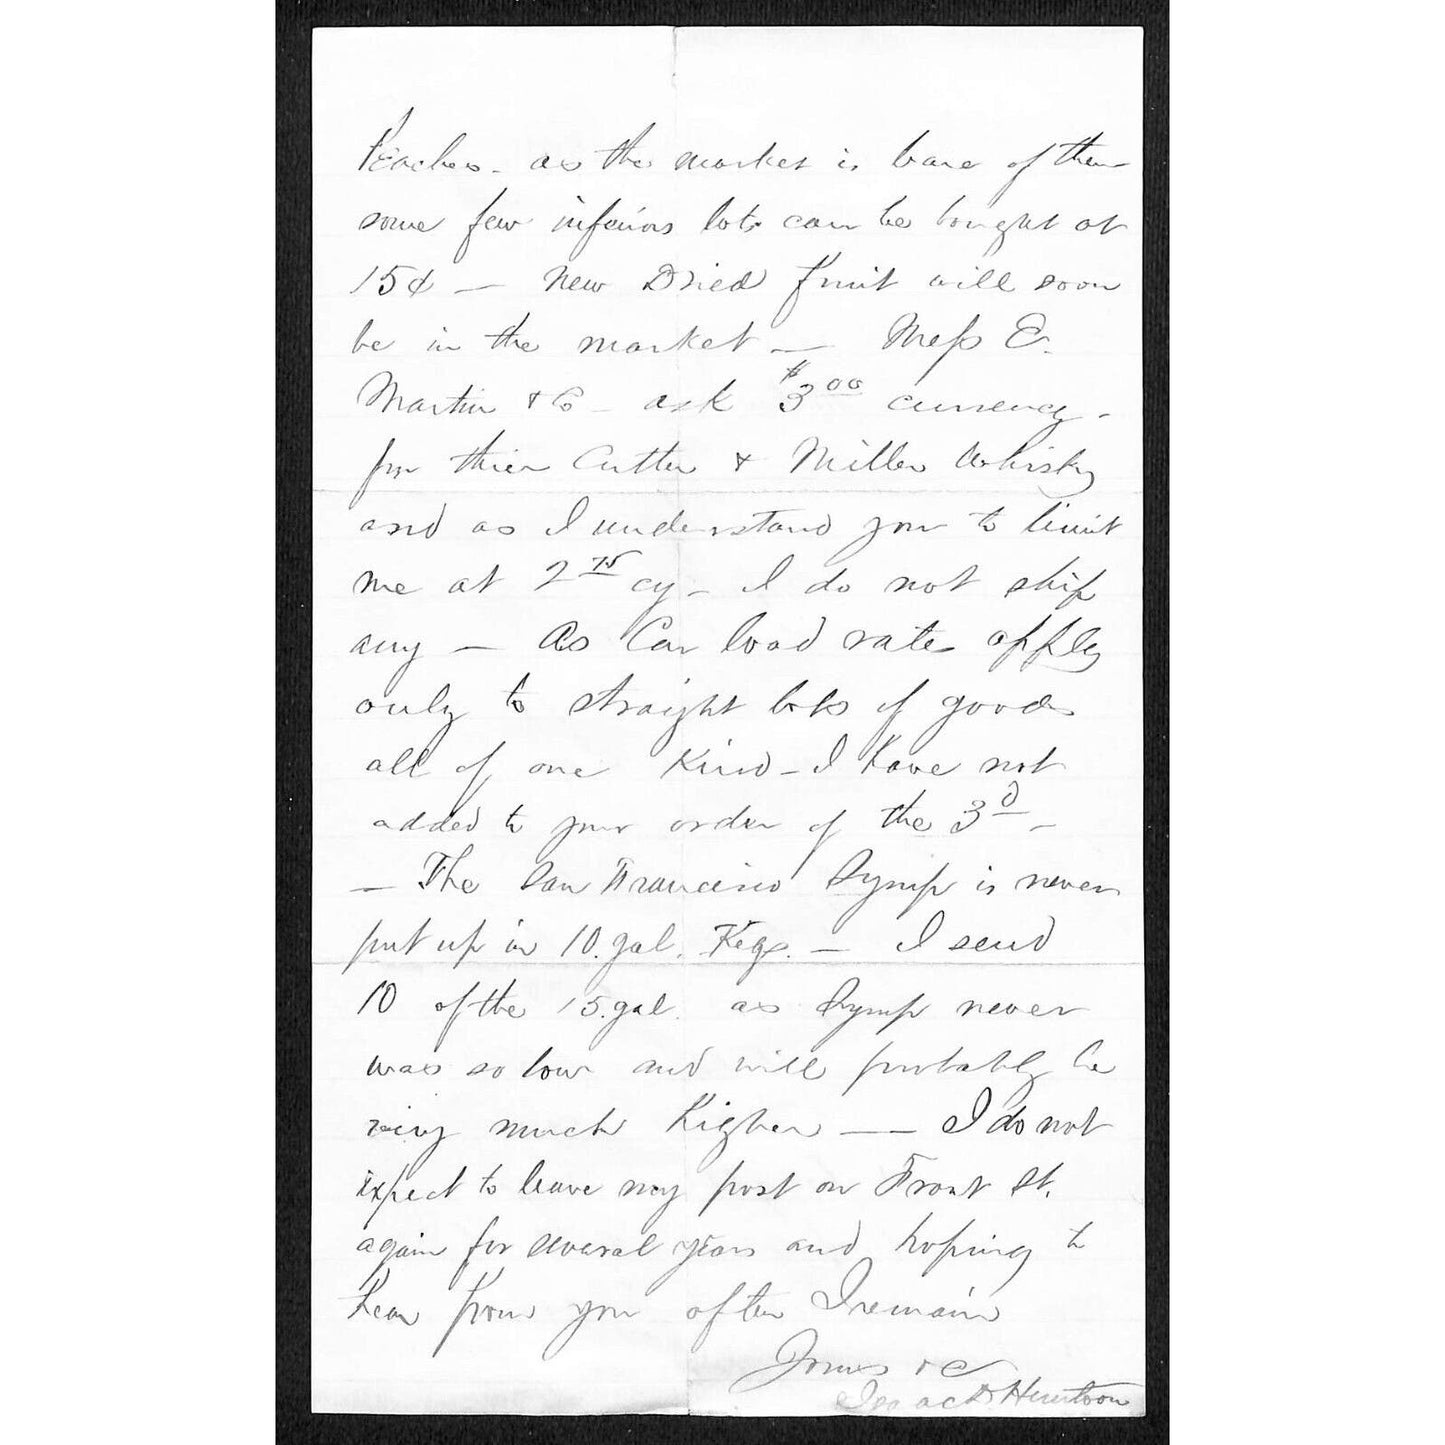 Peaches - as the market is bare of them
some few inferior lots can be bought at
15¢ — New Dried fruit will soon
be in the market — Mess E.
Martin & Co - ask $3.00 currency -
for thier Cutter & Miller Whisky
and as I understand you to limit
me at 2 75 cy - I do not ship
any — As Car load rates apply
only to straight lots of goods
all of one kind - I have not
added to your order of the 3d -
— The San Francisco Syrup is never
put up in 10. gal. Kegs. — I send
10 of the 15. gal. as Syrup never
was so low and will probably be
very much higher — — I do not
expect to leave my post on Front St.
again for several years and hoping to
hear from you often I remain
Yours &c
Isaac Huntoon